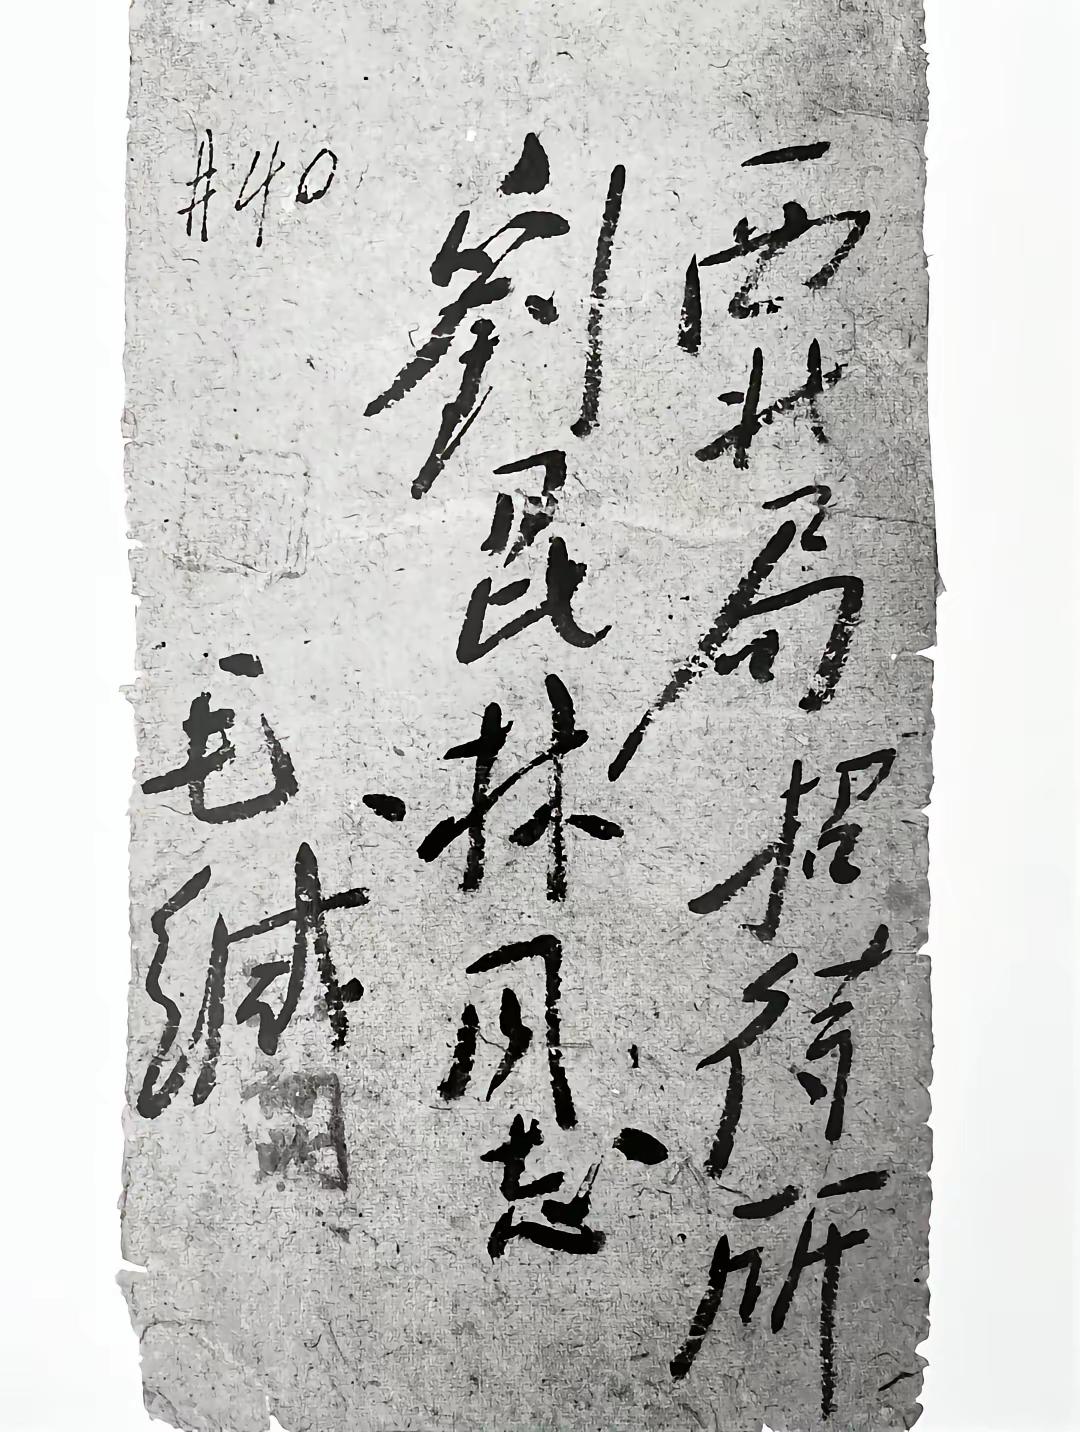 西北局招待所
劉昆林同志
毛緘
#40